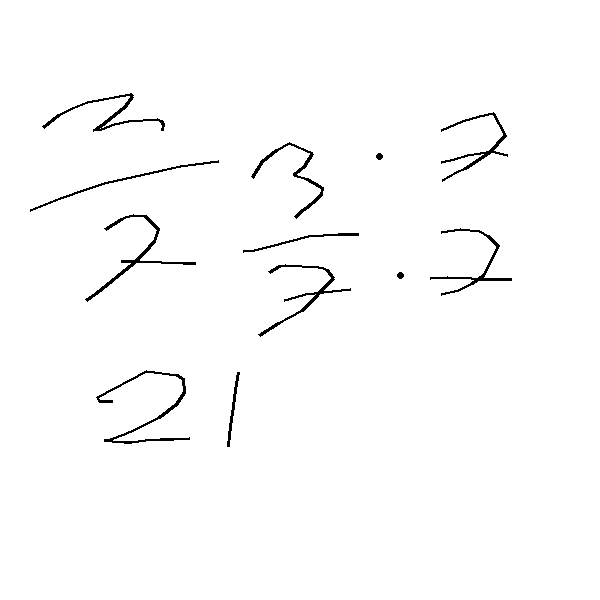 3/7 3·7/7·7
21